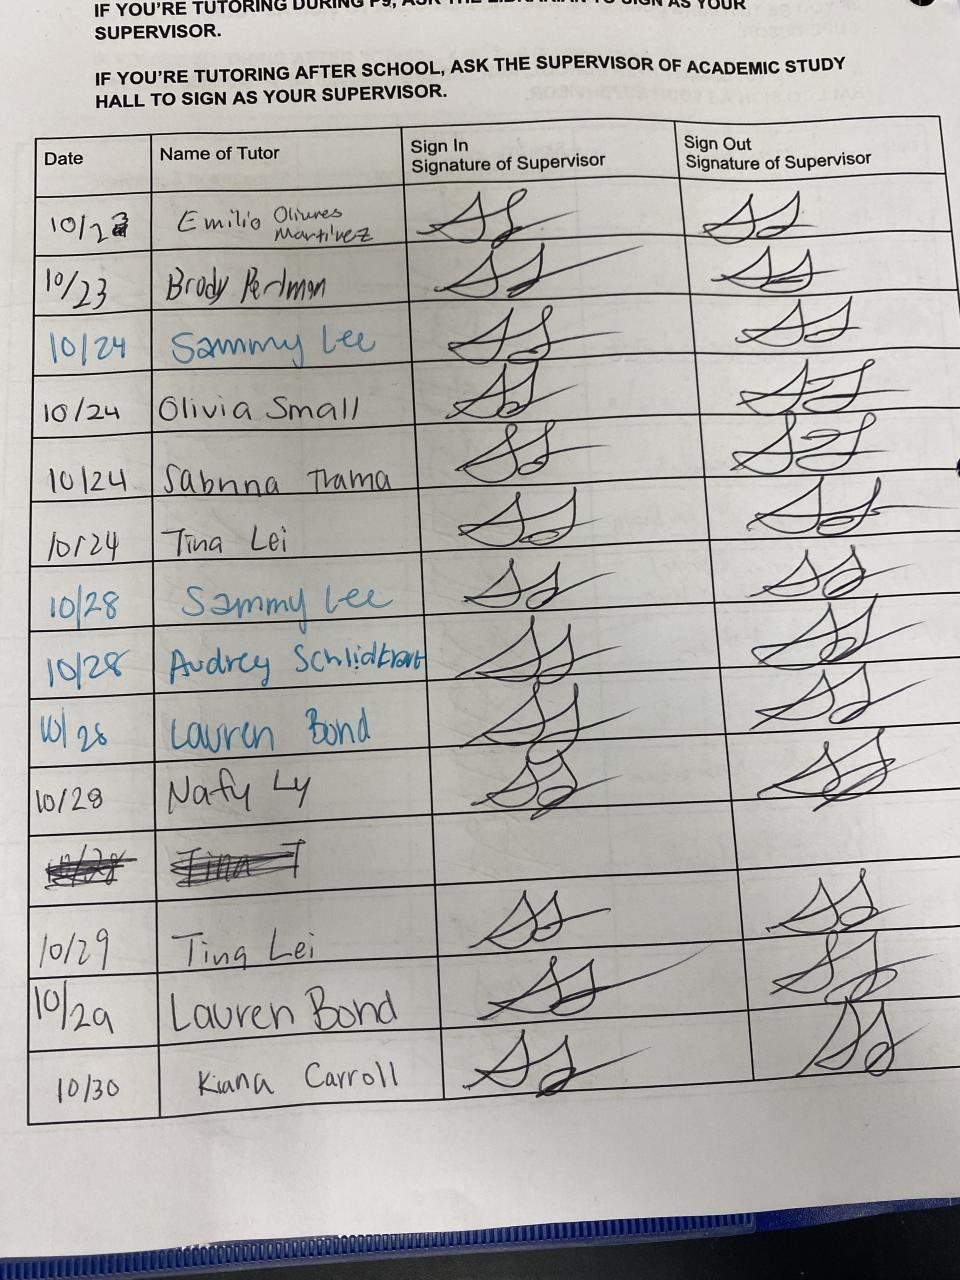 IF YOU'RE TUTORING DURING P9, ASK THE LIBRARIAN TO SIGN AS YOUR
SUPERVISOR.
IF YOU'RE TUTORING AFTER SCHOOL, ASK THE SUPERVISOR OF ACADEMIC STUDY
HALL TO SIGN AS YOUR SUPERVISOR.
Date Name of Tutor Sign In Signature of Supervisor Sign Out Signature of Supervisor
10/23 Emilio Olivares Martinez
10/23 Brody Perlman
10/24 Sammy Lee
10/24 Olivia Small
10/24 Sabrina Trama
10/24 Tina Lei
10/28 Sammy Lee
10/28 Audrey Schlidtraut
10/28 Lauren Bond
10/28 Nafy Ly
10/28 Tina
10/29 Tina Lei
10/29 Lauren Bond
10/30 Kiana Carroll